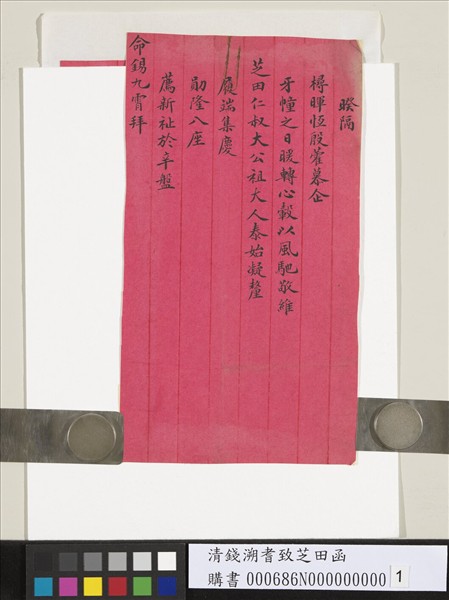 睽隔
樽暉恆殷藿慕企
牙幢之日暖轉心轂以風馳敬維
芝田仁叔大公祖大人泰始凝釐
履端集慶
勛隆八座
薦新祉於辛盤
命錫九霄拜
清錢溯耆致芝田函
購書 000686N000000000
1